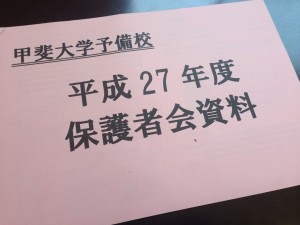 甲斐大学予備校
平成27年度
保護者会資料